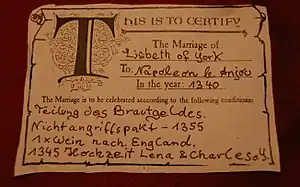 THIS IS TO CERTIFY
The Marriage of
Lisbeth of York
To Napoleon le Anjou
In the year: 1340
The Marriage is to be celebrated according to the following conditions:
Teilung des Brautgeldes.
Nichtangriffspakt - 1355
1x Wein nach England.
1345 Hochzeit Lena & Charles